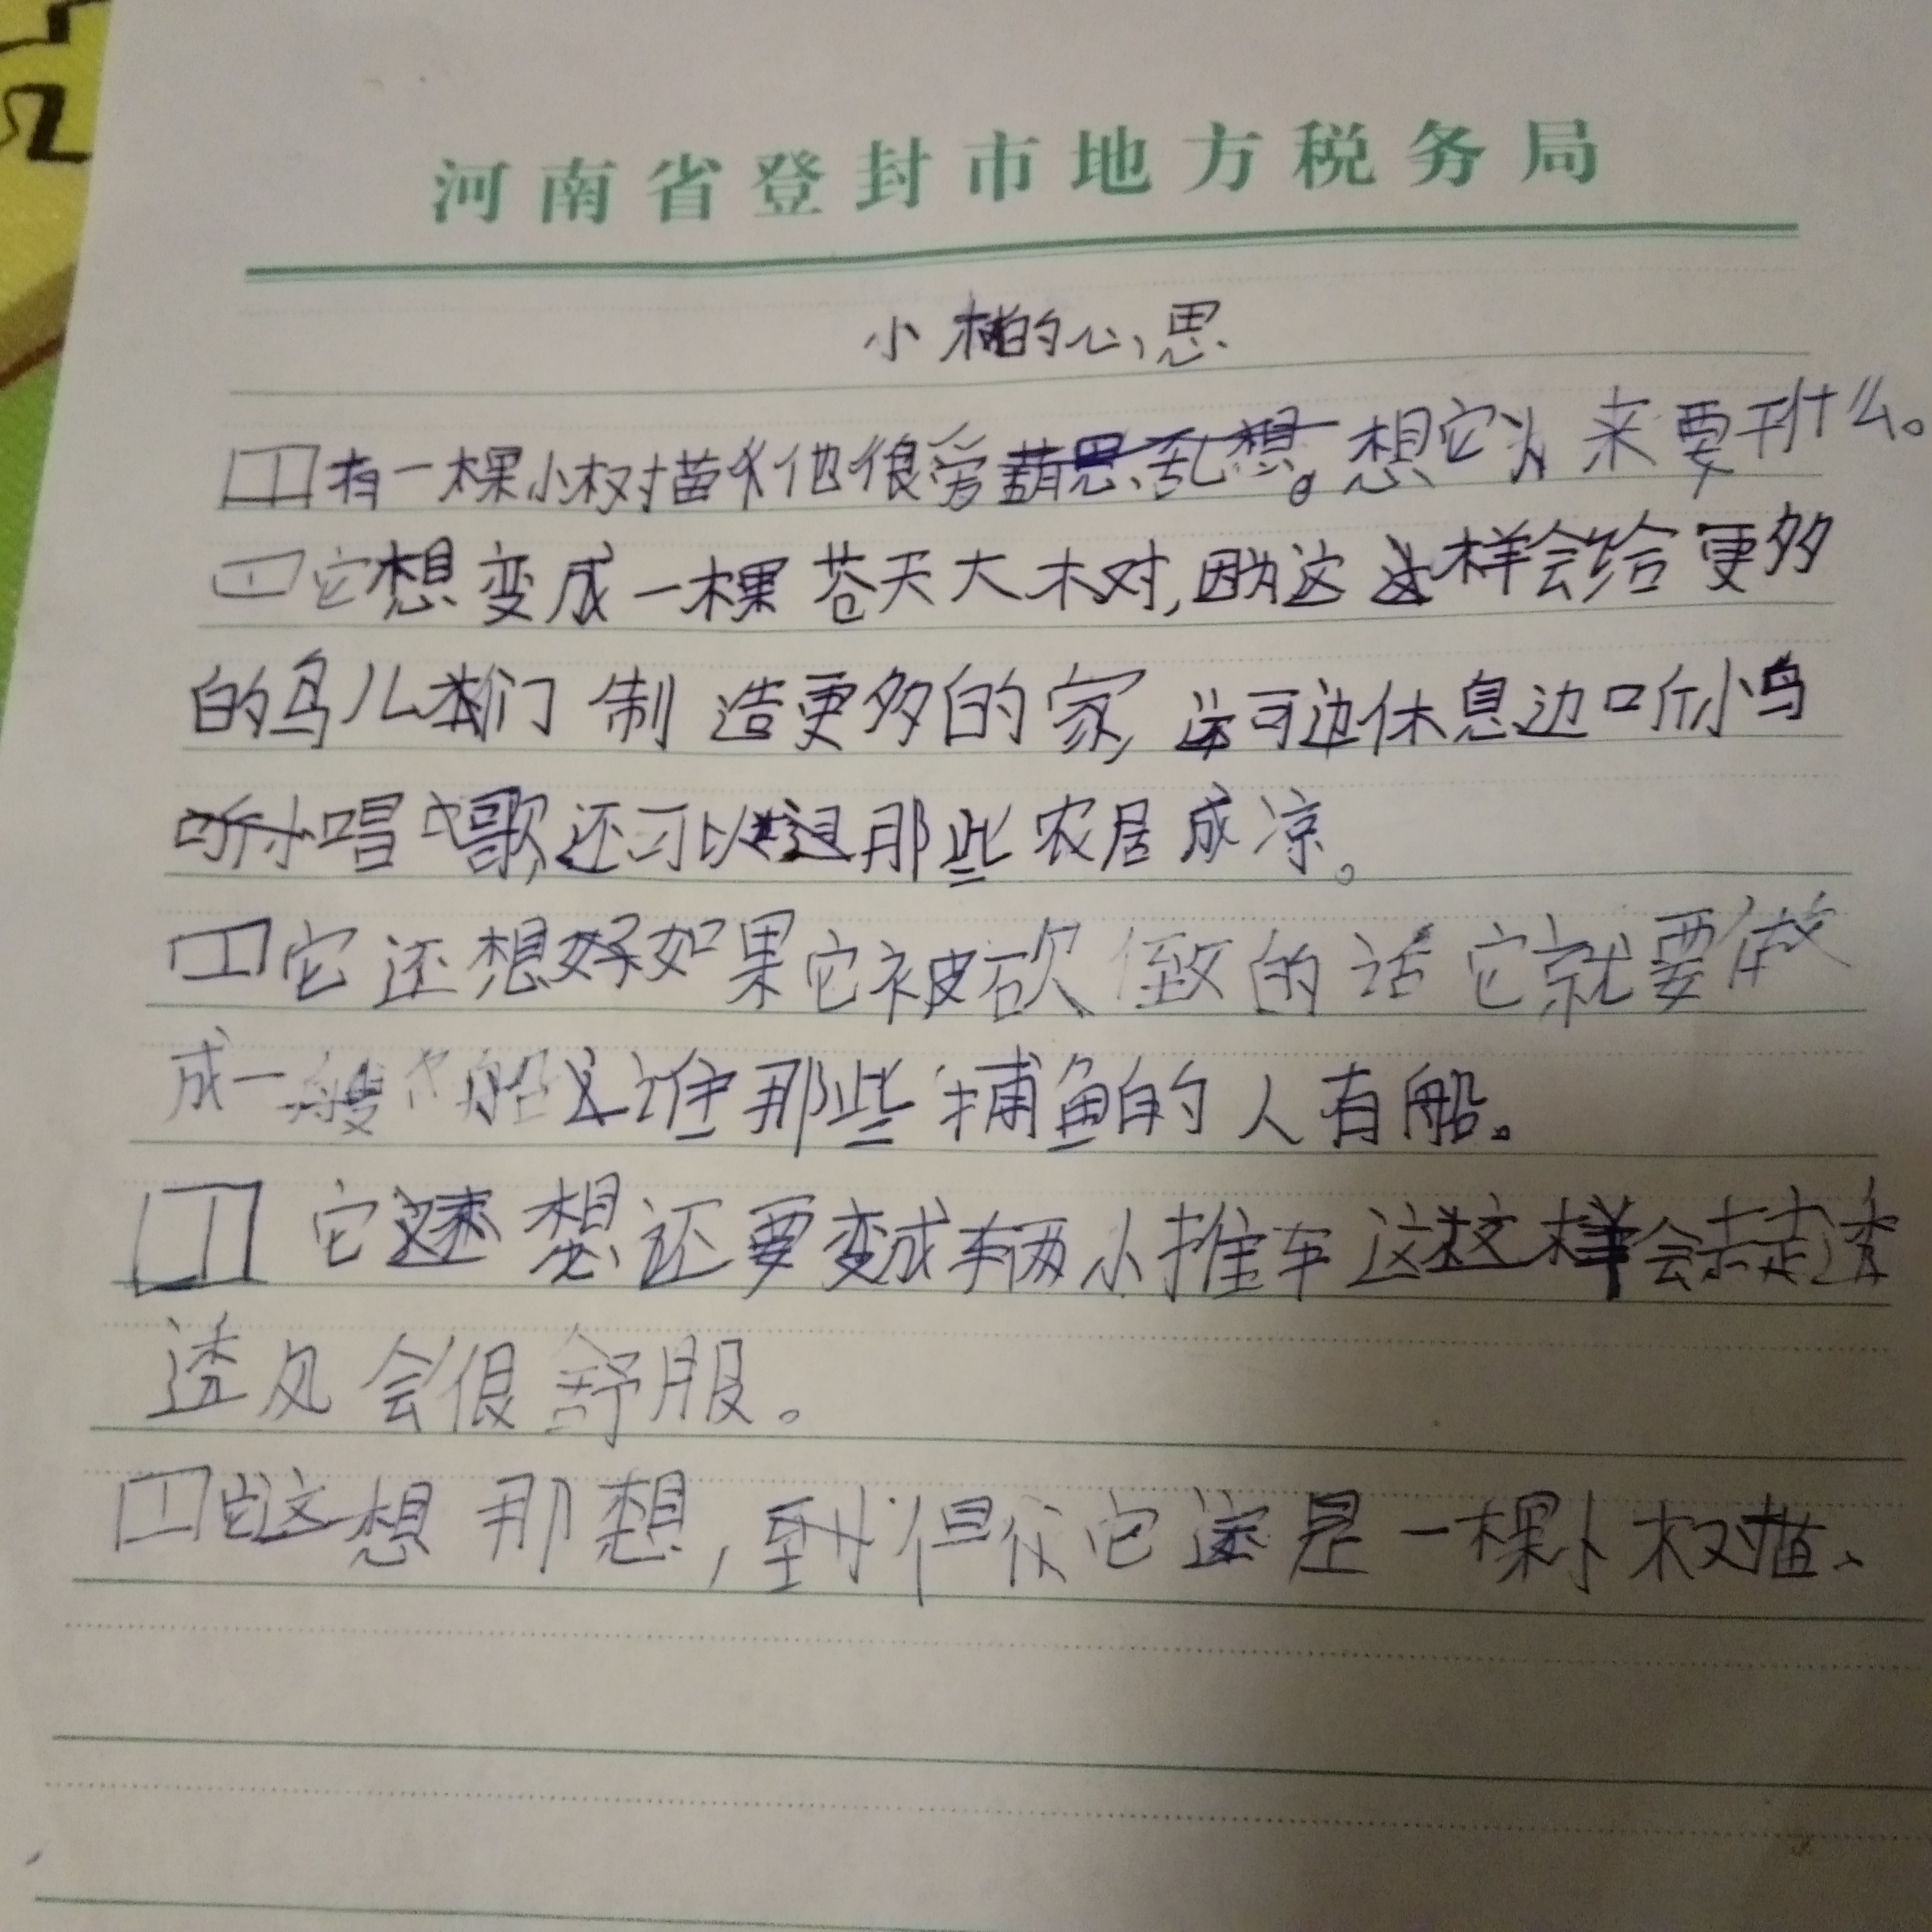 河南省登封市地方税务局
小树的心思
有一棵小树描他很爱葫思乱想。想它 来要干什么。
它想变成一棵苍天大树,因为这样会给更多
的鸟儿们制造更多的家,可边休息边听小鸟
听小唱歌,还可以让那些农居成凉。
它还想好如果它被砍倒的话它就要做
成一艘船让那些捕鱼的人有船。
它还想还要变成辆小推车这样会去走透
透风会很舒服。
它这想那想,但 它还是一棵小树描、